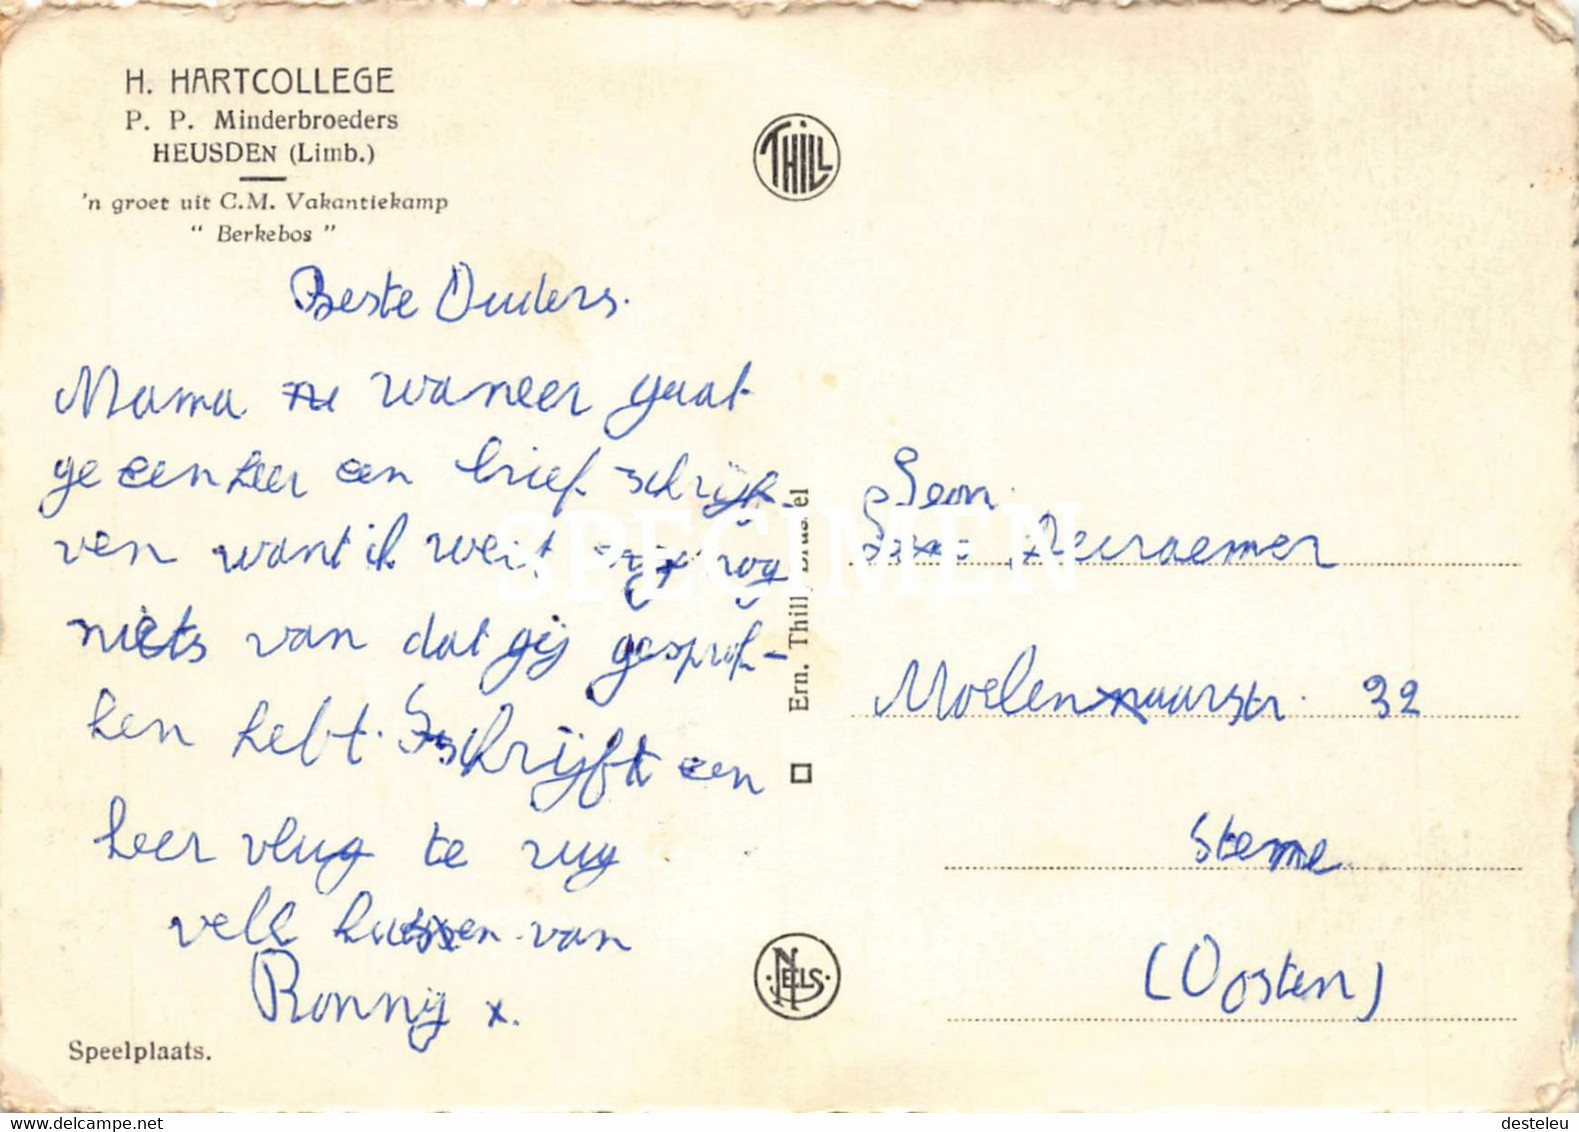 H. HARTCOLLEGE
P. P. Minderbroeders
HEUSDEN (Limb.)
'n groet uit C.M. Vakantiekamp
“ Berkebos ”
Beste Ouders.
Mama waneer gaat
ge een keer een brief schrij
ven want ik weit nog
niets van dat gij gesprok-
ken hebt. Schrijft een
keer vlug te rug
vele kussen van
Ronny x.
Speelplaats.
THILL
Ern. Thill, Brussel
NELS
Leon
Moelenaarstr. 32
Stene
(Oosten)
SPECIMEN
desteleu